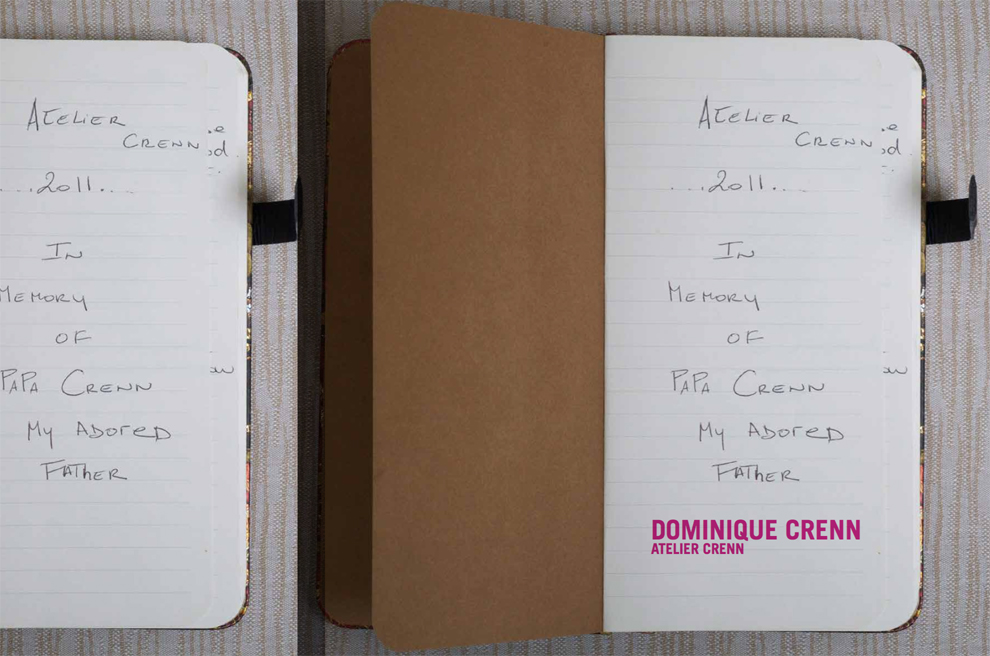 Atelier
Crenn
...2011...
In
Memory
of
Papa Crenn
My Adored
Father
Atelier
Crenn
...2011...
In
Memory
of
Papa Crenn
My Adored
Father
DOMINIQUE CRENN
ATELIER CRENN